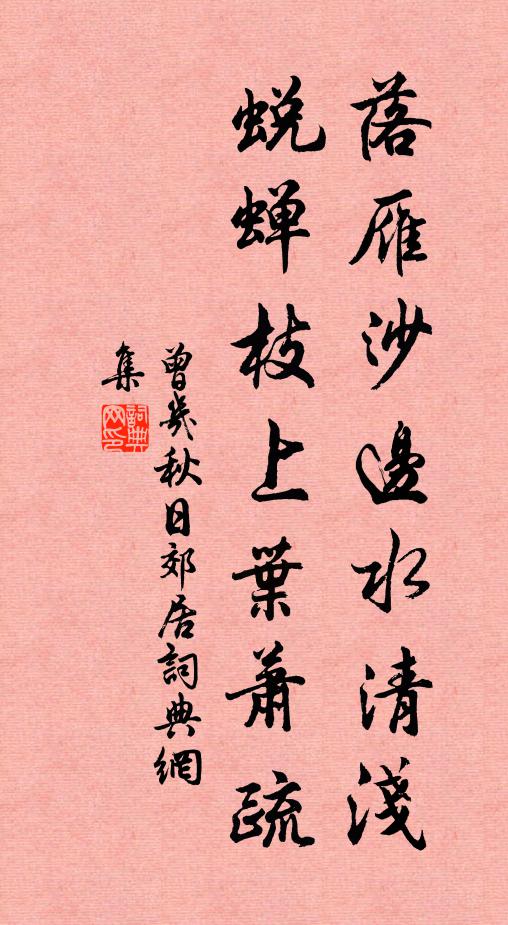 落雁沙邊水清淺
蜕蟬枝上葉蕭疏
曾幾秋日郊居詞典網
集
詞典
网印